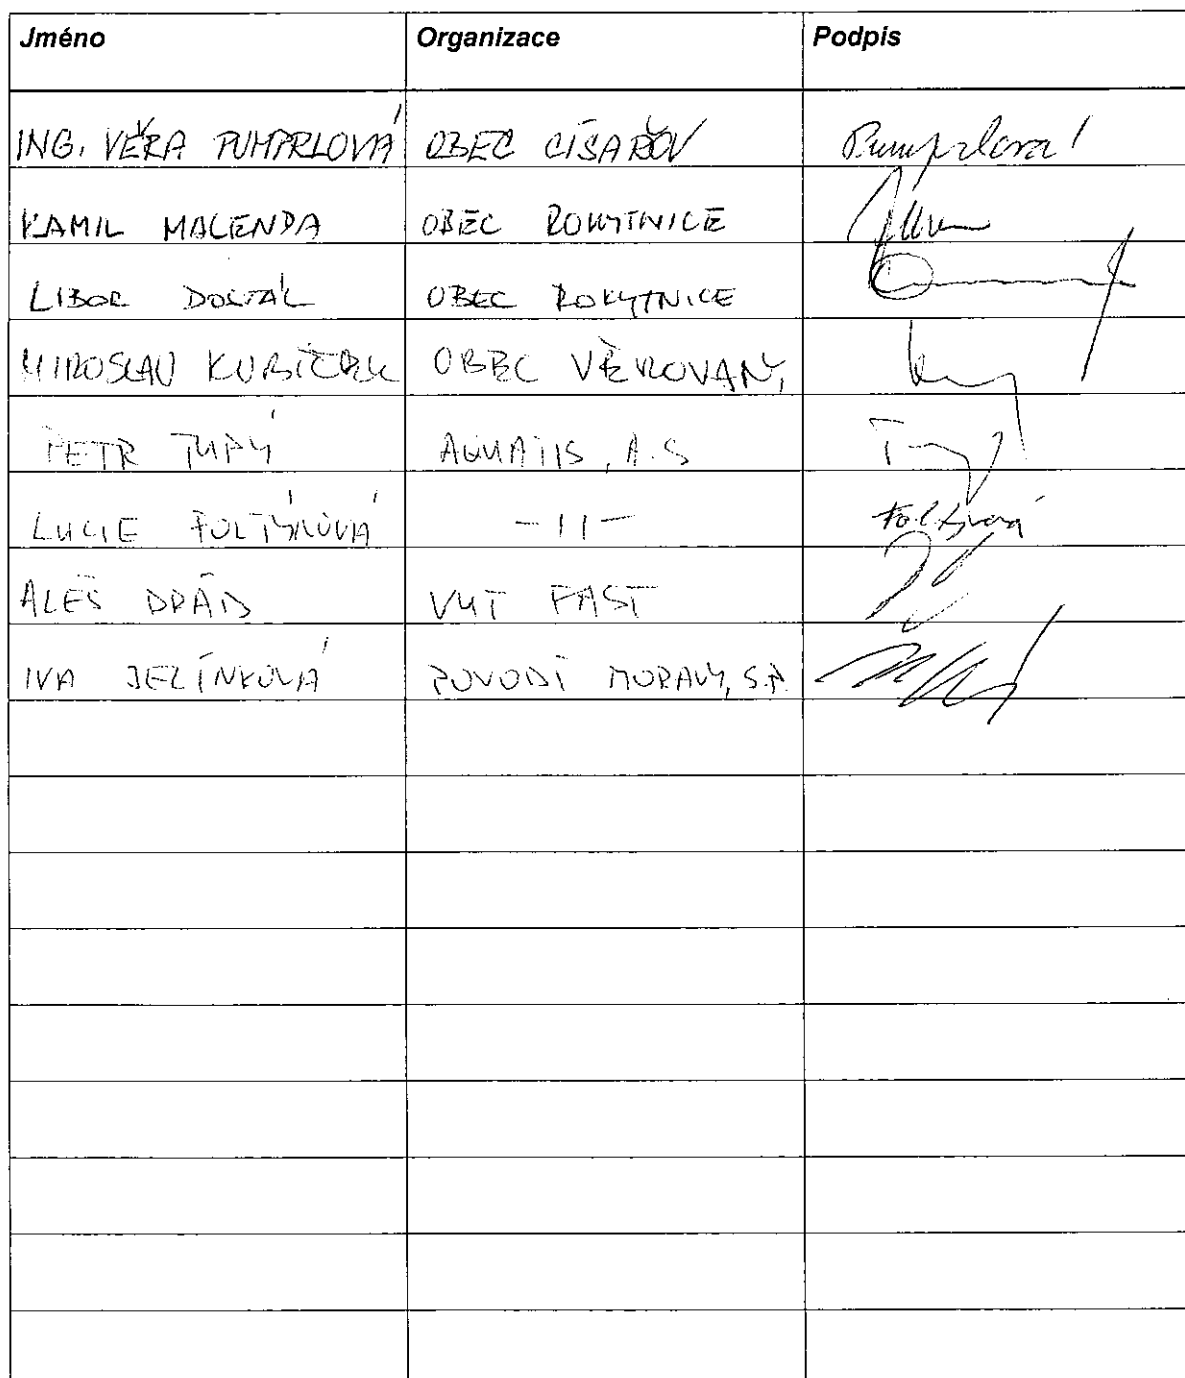 Jméno Organizace Podpis
ING. VĚRA PUMPRLOVÁ OBEC CÍSAŘOV Pumprlová
KAMIL MALENDA OBEC ROKYTNICE
LIBOR DOSTÁL OBEC ROKYTNICE
MIROSLAV KUBÍČEK OBEC VĚROVANY
PETR TUPÝ AQUATIS, A.S
LUCIE FOLTÝNOVÁ -11- Foltýnová
ALEŠ DRÁB VUT FAST
IVA JELÍNKOVÁ POVODÍ MORAVY, S.P.